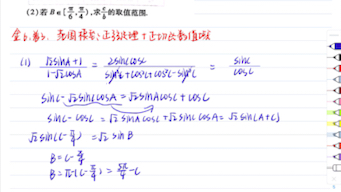 (2)若 B∈[π/6, π/4), 求 c/b 的取值范围.
(1) (√2sinA+1)/(1-√2cosA) = 2sinCcosC/(sin²C+cos²C+cos²C-sin²C) = sinC/cosC
sinC-√2sinCcosA=√2sinAcosC+cosC
sinC-cosC=√2sinAcosC+√2sinCcosA=√2sin(A+C)
√2sin(C-π/4)=√2sinB
B=C-π/4
B=π-(C-π/4)=5π/4-C